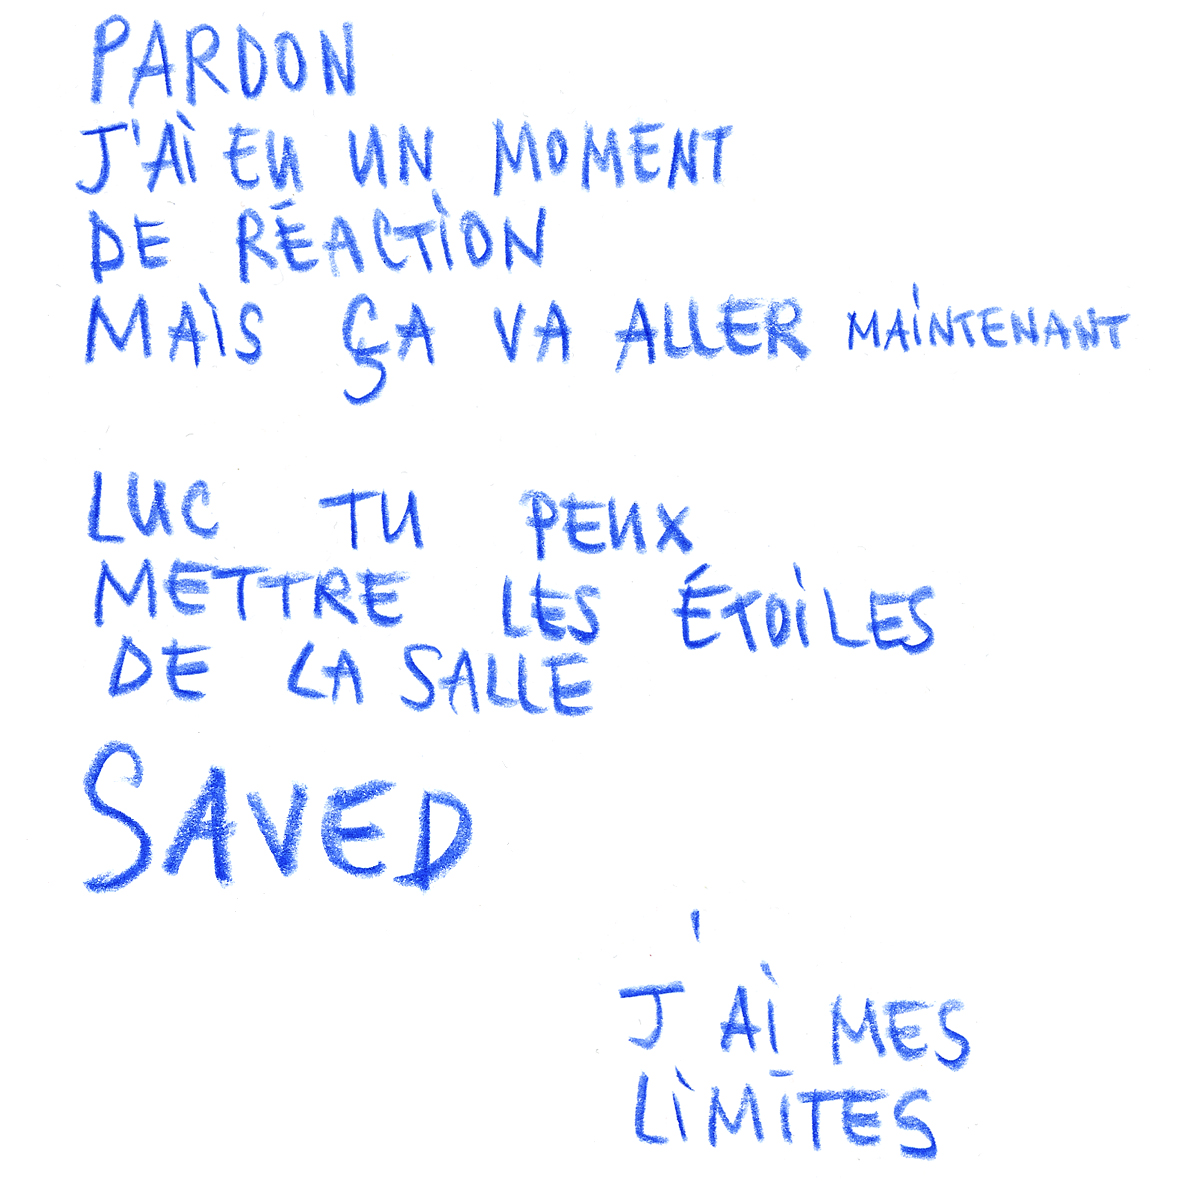 PARDON
J'AI EU UN MOMENT
DE RÉACTION
MAIS ÇA VA ALLER MAINTENANT
LUC TU PEUX
METTRE LES ÉTOILES
DE LA SALLE
SAVED
J'AI MES
LIMITES